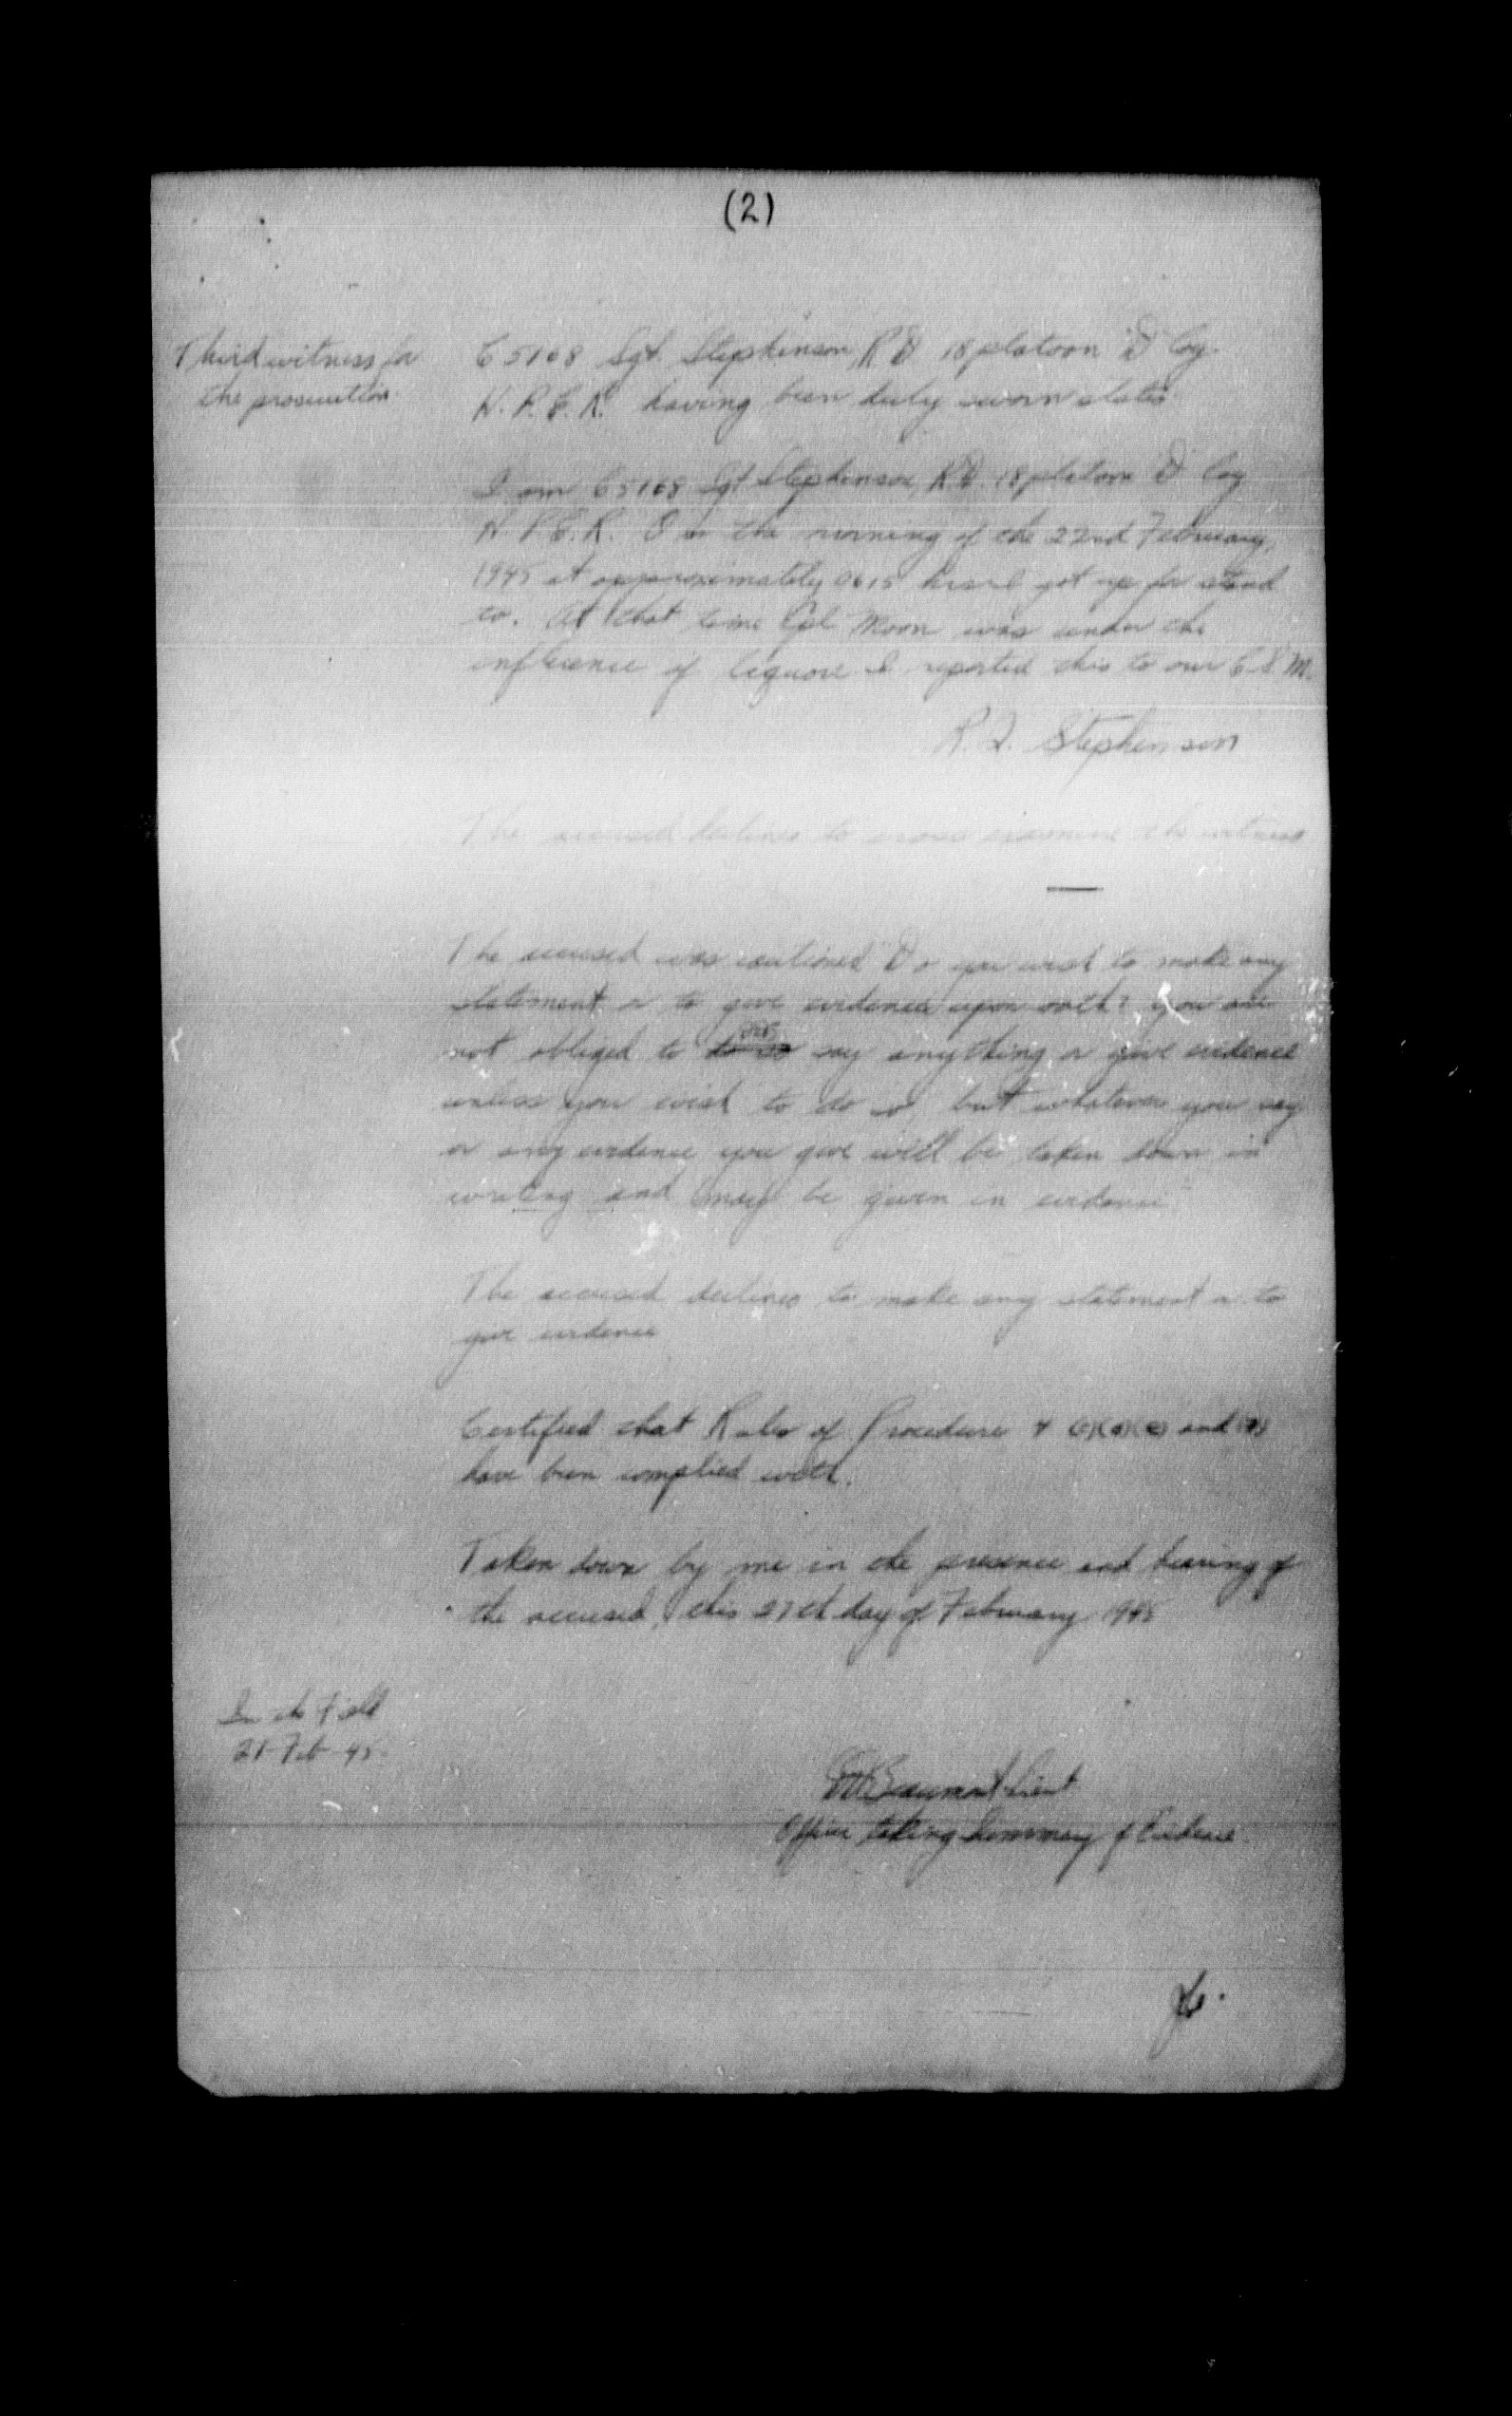 (2)
Third witness for
the prosecution.
C5168 Sgt. Stephenson, R D 18 platoon "D" Coy.
H. P. E. R. having been duly sworn states
I am C5168 Sgt Stephenson, R.D. 18 platoon D Coy
H. P. E. R. On the morning of the 22nd February,
1945 at approximately 0615 hrs I got up for stand
to. At that time Cpl Moon was under the
influence of liquore I reported this to our C.S.M.
Stephenson
The accused declines to cross examine the witness
The accused was cautioned "Do you wish to make any
statement or to give evidence upon oath? You are
not obliged to do so say anything or give evidence
unless you wish to do so, but whatever you say
or any evidence you give will be taken down in
writing and may be given in evidence"
The accused declines to make any statement or to
give evidence
Certified that Rules of Procedure 4 and
have been complied with.
Taken down by me in the presence and hearing of
the accused, this 27th day of February 1945
In the Field
Feb 45.
Beaumont Lieut
Officer taking Summary of Evidence.